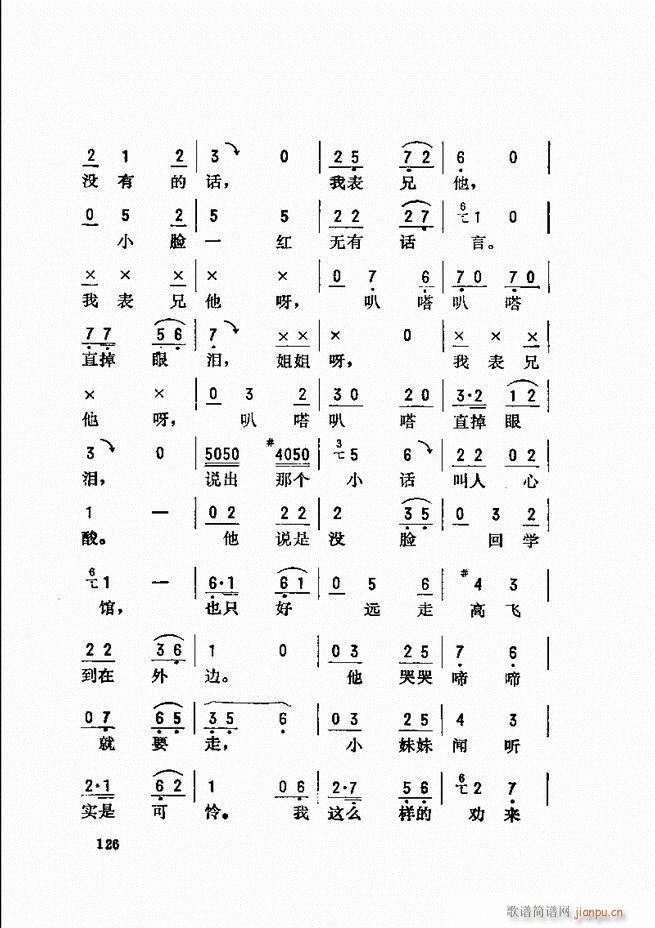 2 1 2 | 3 0 | 2 5 7 2 | 6 0 |
没有的话， 我表兄他，
0 5 2 | 5 5 | 2 2 2 7 | 6 1 0 |
小脸一红 无有话言。
× × × | × × | 0 7 6 | 7 0 7 0 |
我表兄他呀， 叭嗒叭嗒
7 7 5 6 | 7 × × | × 0 | × × × |
直掉眼泪， 姐姐呀， 我表兄
× × | 0 3 2 | 3 0 2 0 | 3·2 1 2 |
他呀， 叭嗒叭嗒直掉眼
3 0 | 5050 #4050 | 3 5 6 | 2 2 0 2 |
泪， 说出那个小话叫人心
1 — | 0 2 2 2 | 2 3 5 | 0 3 2 |
酸。 他说是没脸回学
6 1 — | 6·1 6 1 | 0 5 6 | #4 3 |
馆， 也只好远走高飞
2 2 3 6 | 1 0 | 0 3 2 5 | 7 6 |
到在外边。 他哭哭啼啼
0 7 6 5 | 3 5 6 | 0 3 2 5 | 4 3 |
就要走， 小妹妹闻听
2·1 6 2 | 1 0 6 | 2·7 5 6 | 6 2 7 |
实是可怜。 我这么样的劝来
126
歌谱简谱网 jianpu.cn